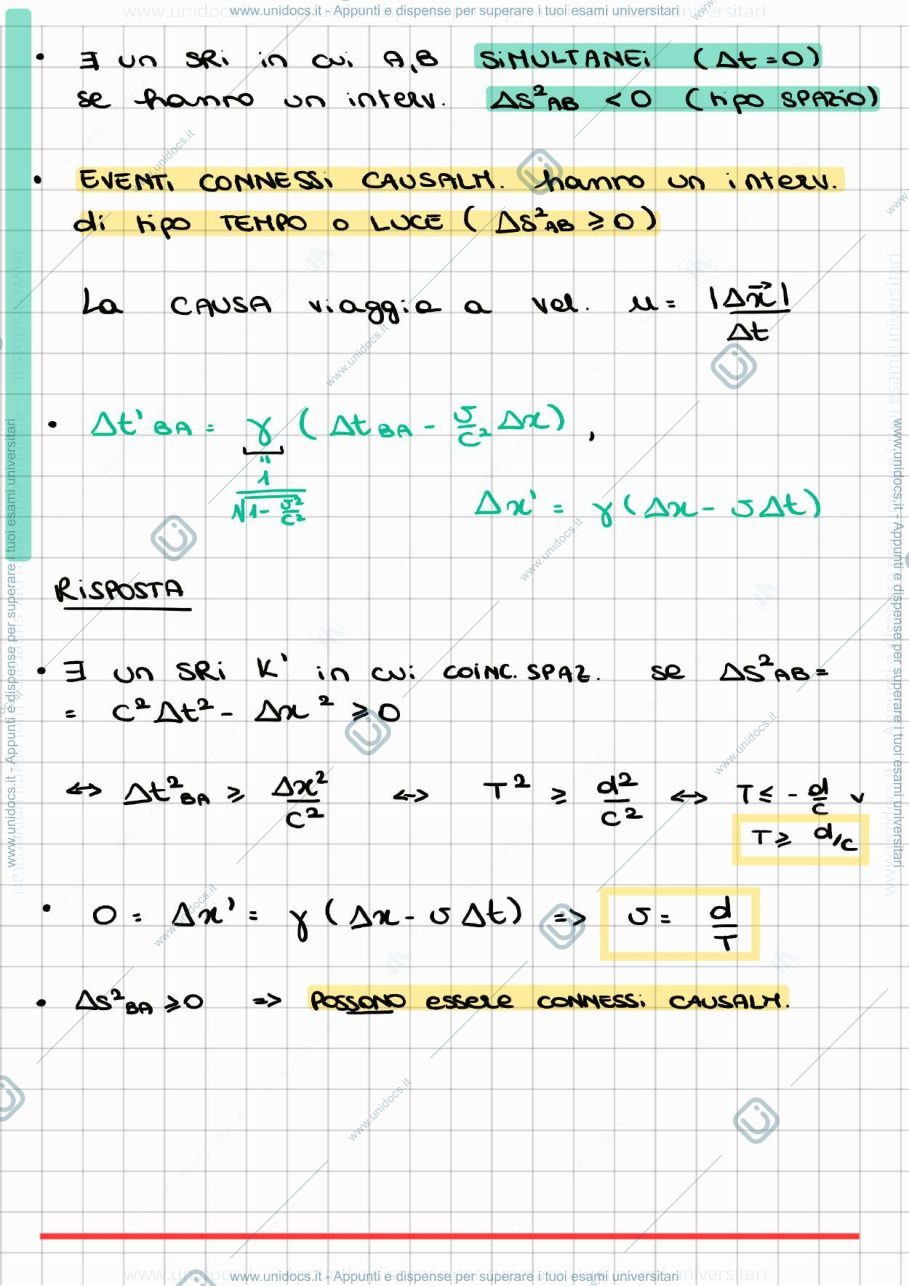 www.unidocs.it - Appunti e dispense per superare i tuoi esami universitari
• ∃ un SRi in cui A,B SIMULTANEI (Δt=0)
se hanno un interv. ΔS²AB < 0 (tipo SPAZIO)
• EVENTI CONNESSI CAUSALM. hanno un interv.
di tipo TEMPO o LUCE (ΔS²AB ≥ 0)
La CAUSA viaggia a vel. u = |Δx⃗| / Δt
• Δt'BA = γ (ΔtBA - v/c² Δx) ,
" 1/√(1 - v²/c²)
Δx' = γ(Δx - vΔt)
RISPOSTA
• ∃ un SRi K' in cui COINC. SPAZ. se ΔS²AB =
= c²Δt² - Δx² ≥ 0
↔ Δt²BA ≥ Δx²/c² ↔ T² ≥ d²/c² ↔ T ≤ - d/c ∨
T ≥ d/c
• 0 = Δx' = γ(Δx - vΔt) => v = d/T
• ΔS²BA ≥ 0 => POSSONO essere CONNESSI CAUSALM.
www.unidocs.it - Appunti e dispense per superare i tuoi esami universitari